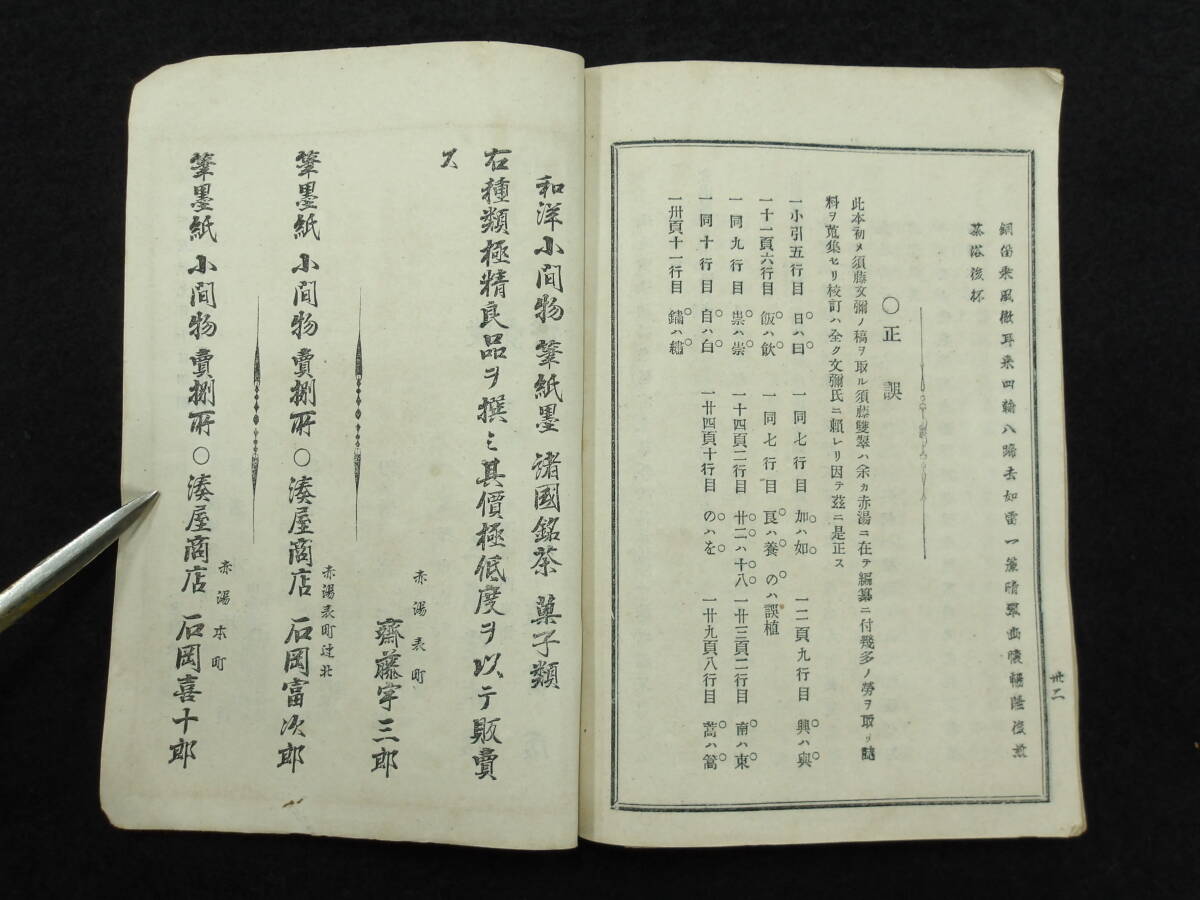 銅笛乘風傲耳来四輪八蹄去如雷一簾晴翠
茶浴後杯
卅二
○正誤
此本初メ須藤文彌ノ稿ヲ取ル須藤雙翠ハ余カ赤湯ニ在テ編纂ニ付幾多ノ勞ヲ取リ誌
料ヲ蒐集セリ校訂ハ全ク文彌氏ニ賴レリ因テ玆ニ是正ス
一小引五行目 日ハ曰 一同七行目 加ハ如 一二頁九行目 興ハ與
一十一頁六行目 飯ハ飲 一同七行目 㫐ハ養 のハ誤植
一同九行目 祟ハ崇 一十四頁二行目 廿二ハ十八 一廿三頁二行目 南ハ東
一同十行目 自ハ白 一廿四頁十行目 のハを 一廿九頁八行目 蒿ハ篙
一卅頁十一行目 鏽ハ繡
和洋小間物 筆紙墨 諸國銘茶 菓子類
右種類極精良品ヲ撰ミ其價極低度ヲ以テ販賣
ス
赤湯表町
齋藤宇三郎
筆墨紙 小間物 賣捌所○湊屋商店 赤湯表町辻北 石岡富次郎
筆墨紙 小間物 賣捌所○湊屋商店 赤湯本町 石岡喜十郎